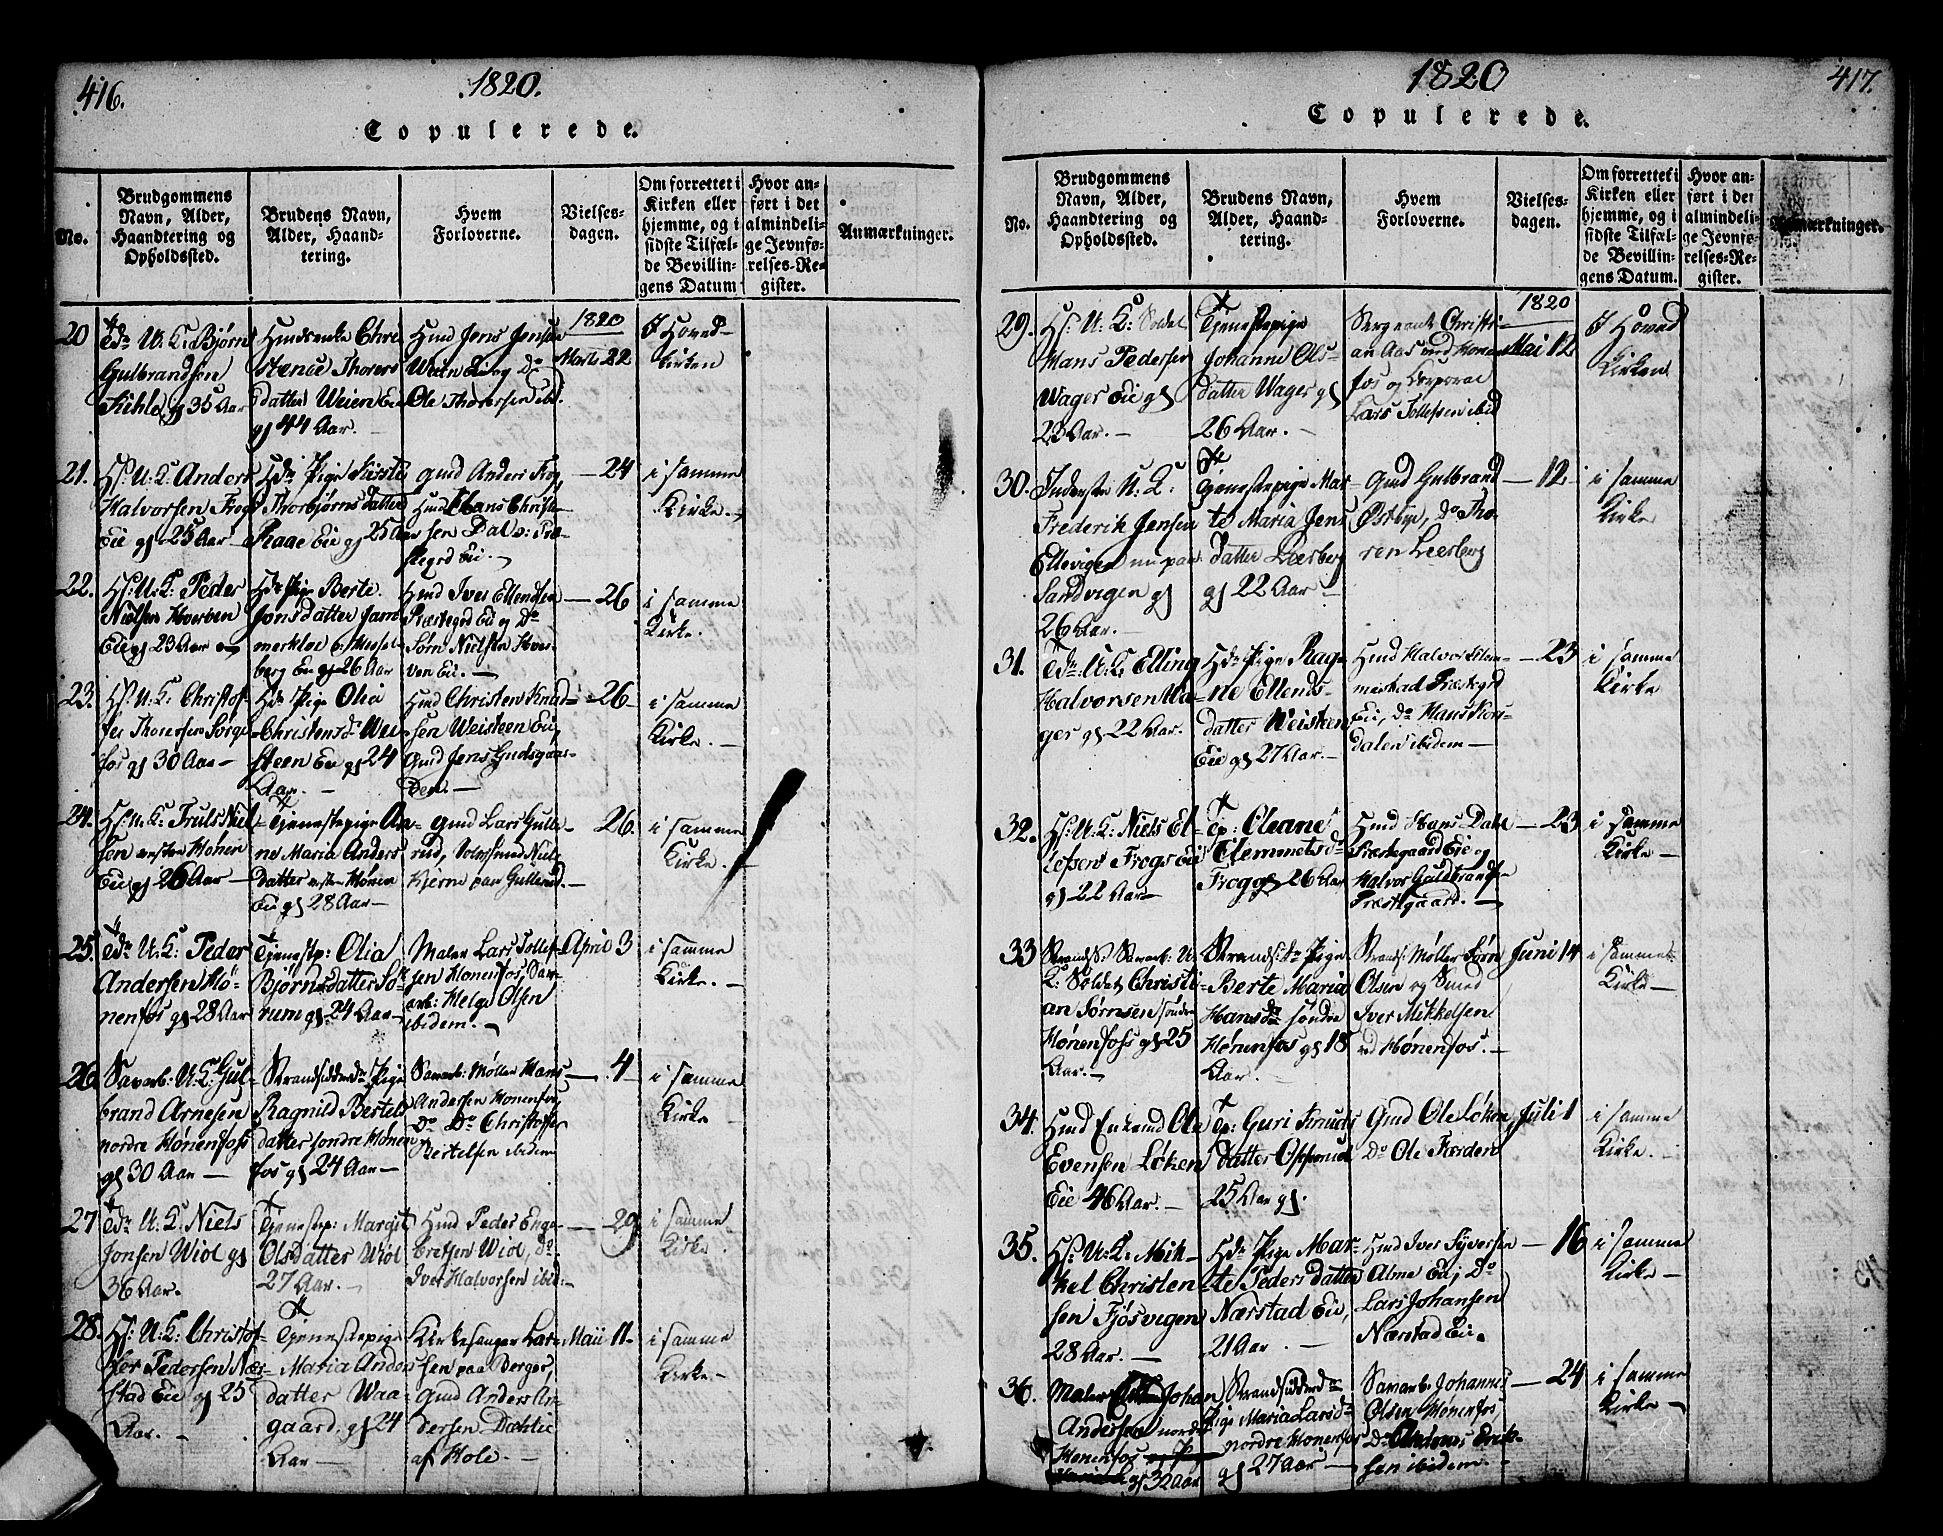 416.
1820.
Copulerede.
No.
Brudgommens
Navn, Alder,
Haandtering og
Opholdssted.
Brudens Navn,
Alder, Haand-
tering.
Hvem
Forloverne.
Vielses-
dagen.
Om forrettet i
Kirken eller
hjemme, og i
sidste Tilfæl-
de Bevillin-
gens Datum
Hvor an-
ført i det
almindeli-
ge Jevnfø-
relses-Re-
gister.
Anmærkninger.
20
U: K: Bjørn
Gulbrandsen
Kihle gl 35 Aar
Christence Thorers
datter Weien Eie
gl 44 Aar.
Hmd Jens Jensen
Weien Eie og Do
Ole Thoresen ibd.
1820
Marts 22
I Hoved-
kirken
21.
Hs: U: K: Anders
Halvorsen Frog
Eie gl 25 Aar
Hds Pige Kirsti
Thorbjørns datter
Raae Eie gl 25 Aar
Gmd Anders Frog,
Hmd Hans Christen-
sen Dal
stegrd Eie.
24
i samme
Kirke.
22.
Hs: U: K: Peder
Nielsen Hverven
Eie gl 23 Aar
Hds Pige Berte
Jonsdatter
berg Eie gl 26 Aar
Hmd Iver Ellendsen
Præstegrd Eie og Do
Sørn Nielsen Hver-
ven Eie.
26
i samme
Kirke.
23.
Hs: U: K: Christof-
fer Thoresen Sørge-
fos gl 30 Aar
Hds Pige Olia
Christensdr Wei-
steen Eie gl 24
Aar.
Hmd Christen Knud-
sen Weisteen Eie,
Gmd Jens Gudsgaar-
den.
26
i samme
Kirke.
24.
Hs: U: K: Truls Niel-
sen Hønen
Eie gl 26 Aar
Tjenestepige An-
ne Maria Anders
datter Hønen
Eie gl 28 Aar
Gmd Lars Gulle-
rud, Niels
Hjerne paa Gullerud.
26.
i samme
Kirke.
25.
U: K: Peder
Andersen Hø-
nenfos gl 28 Aar
Tjenestp: Olia
Bjørnsdatter So-
rum gl 24 Aar
Maler Lars Tollef-
sen Hønenfos, Sav-
arb: Helge Olsen
ibidem.
April 3
i samme
Kirke.
26.
Savarb: U: K: Gul-
brand Arnesen
nordre Hønenfoss
gl 30 Aar
Strandsidder Pige
Ragnild Bertels
datter søndre Hønen
fos gl 24 Aar
Savarb: Møller Hans
Andersen Hønenfos,
Do Do Christoffer
Bertelsen ibidem
4
i samme
Kirke
27
U: K: Niels
Jonsen Wiol gl
36 Aar.
Tjenestep: Margit
Olsdatter Wiol
27 Aar.
Hmd Peder Enge-
bretsen Wiol, Do
Iver Halvorsen ibid:
29
i samme
Kirke
28.
Hs: U: K: Christof-
fer Pedersen Nær-
stad Eie gl 25
Aar.
Tjenestepige
Maria Anders
datter Waa-
gaard, gl 24
Aar
Kirkesanger Lar-
sen paa Berger,
Gmd Anders An-
dersen Dæhlie
af Hole.
Maii 11.
i samme
Kirke
1820
417.
Copulerede.
No.
Brudgommens
Navn, Alder,
Haandtering og
Opholdssted.
Brudens Navn,
Alder, Haand-
tering.
Hvem
Forloverne.
Vielses-
dagen.
Om forrettet i
Kirken eller
hjemme, og i
sidste Tilfæl-
de Bevillin-
gens Datum.
Hvor an-
ført i det
almindeli-
ge Jevnfø-
relses-Re-
gister.
Anmærkninger.
29.
Hs: U: K: Soldat
Hans Pedersen
Wager Eie gl
23 Aar.
Tjenestepige
Johanne Ols-
datter Wager gl
26 Aar.
Sergeant Christi-
an Aas ved Hønen-
fos og Corporal
Lars Tollefsen ibid
1820
Mai 12.
I Hoved
Kirken
30.
Inderste U: K:
Frederik Jensen
Ellevigen nu paa
Sandvigen gl
26 Aar.
Tjenestepige Mar-
te Maria Jens
datter Leerberg
gl 22 Aar
Gmd Gulbrand
Østbye, Do Tho-
ren Leerberg
12.
i samme
Kirke
31.
U: K: Elling
Halvorsen Ha-
ger gl 22 Aar.
Hds Pige Rag-
ne Ellends-
datter Weisteen
Eie gl 27 Aar.
Hmd Halvor
Præstegrd
Eie, Do Hans Kors-
dalen ibidem
23
i samme
Kirke
32.
Hs: U: K: Niels El-
lefsen Frogs Eie
gl 22 Aar
Tp: Oleane
Clemmetsdr
Frog gl 26 Aar
Hmd Hans Dahl
Præstegaard Eie og
Halvor Guldbrands.
Præstegaard.
23
i samme
Kirke
33
Strands: Savarb: U:
K: Soldat Christi-
an Sørnsen søndre
Hønenfoss gl 25
Aar.
Strandsidr Pige
Berte Maria
Hansdr søndre
Hønenfos gl 18
Aar.
Strands: Møller Sørn
Olsen og Smed
Iver Mikkelsen
ved Hønenfos.
Juni 14
i samme
Kirke
34.
Hmd Enkemd Ole
Evensen Løken
Eie 46 Aar.
Tp: Guri Knuds
datter Opperud
25 Aar gl.
Gmd Ole Løken,
Do Ole Færden
Juli 1
i samme
Kirke.
35.
Hs: U: K: Mik-
kel Christen-
sen Fjøsvigen
28 Aar.
Hds Pige Mar-
te Peders datter
Nærstad Eie,
21 Aar.
Hmd Iver Syversen
Alme Eie, Do
Lars Johansen
Nærstad Eie.
16
i samme
Kirke
36.
Maler Johan
Andersen nordre
Hønenfos
gl 32 Aar
Strandsidder
Pige Maria Larsdr
nordre Hønenfos
gl 27 Aar
Savarb: Johannes
Olsen Hønenfos,
Do Anders Erik-
sen ibidem.
24
i samme
Kirke